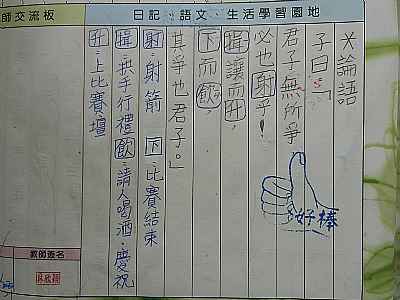 日記、語文、生活學習園地
師交流板
*論語
子曰:「
君子無所爭
必也射乎!
揖讓而升,
下而飲,
其爭也君子。」
射:射箭 下:比賽結束
揖:拱手行禮 飲:請人喝酒,慶祝
升:上比賽壇
好棒
教師簽名